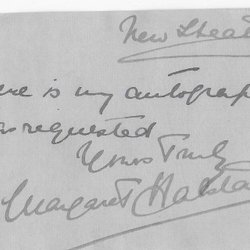 New Theat
ere is my autograp
as requested
Yours Truly
Margaret Halsta